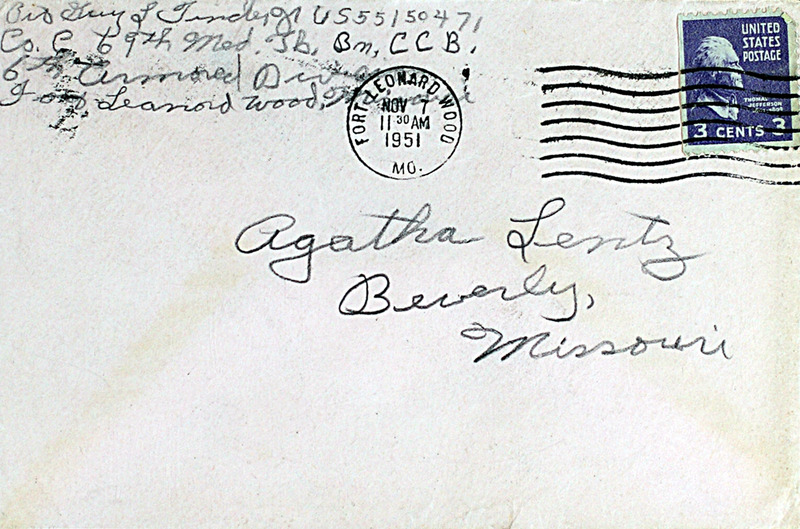 Pvt Guy L Tinder, Jr US55150471
Co. C 69th Med. Tk. Bn, CCB.
6th Armored Div
Fort Leanord Wood,
FORT LEONARD WOOD
NOV 7
11 30 AM
1951
MO.
UNITED
STATES
POSTAGE
THOMAS
JEFFERSON
3 CENTS 3
Agatha Lentz
Beverly,
Missouri